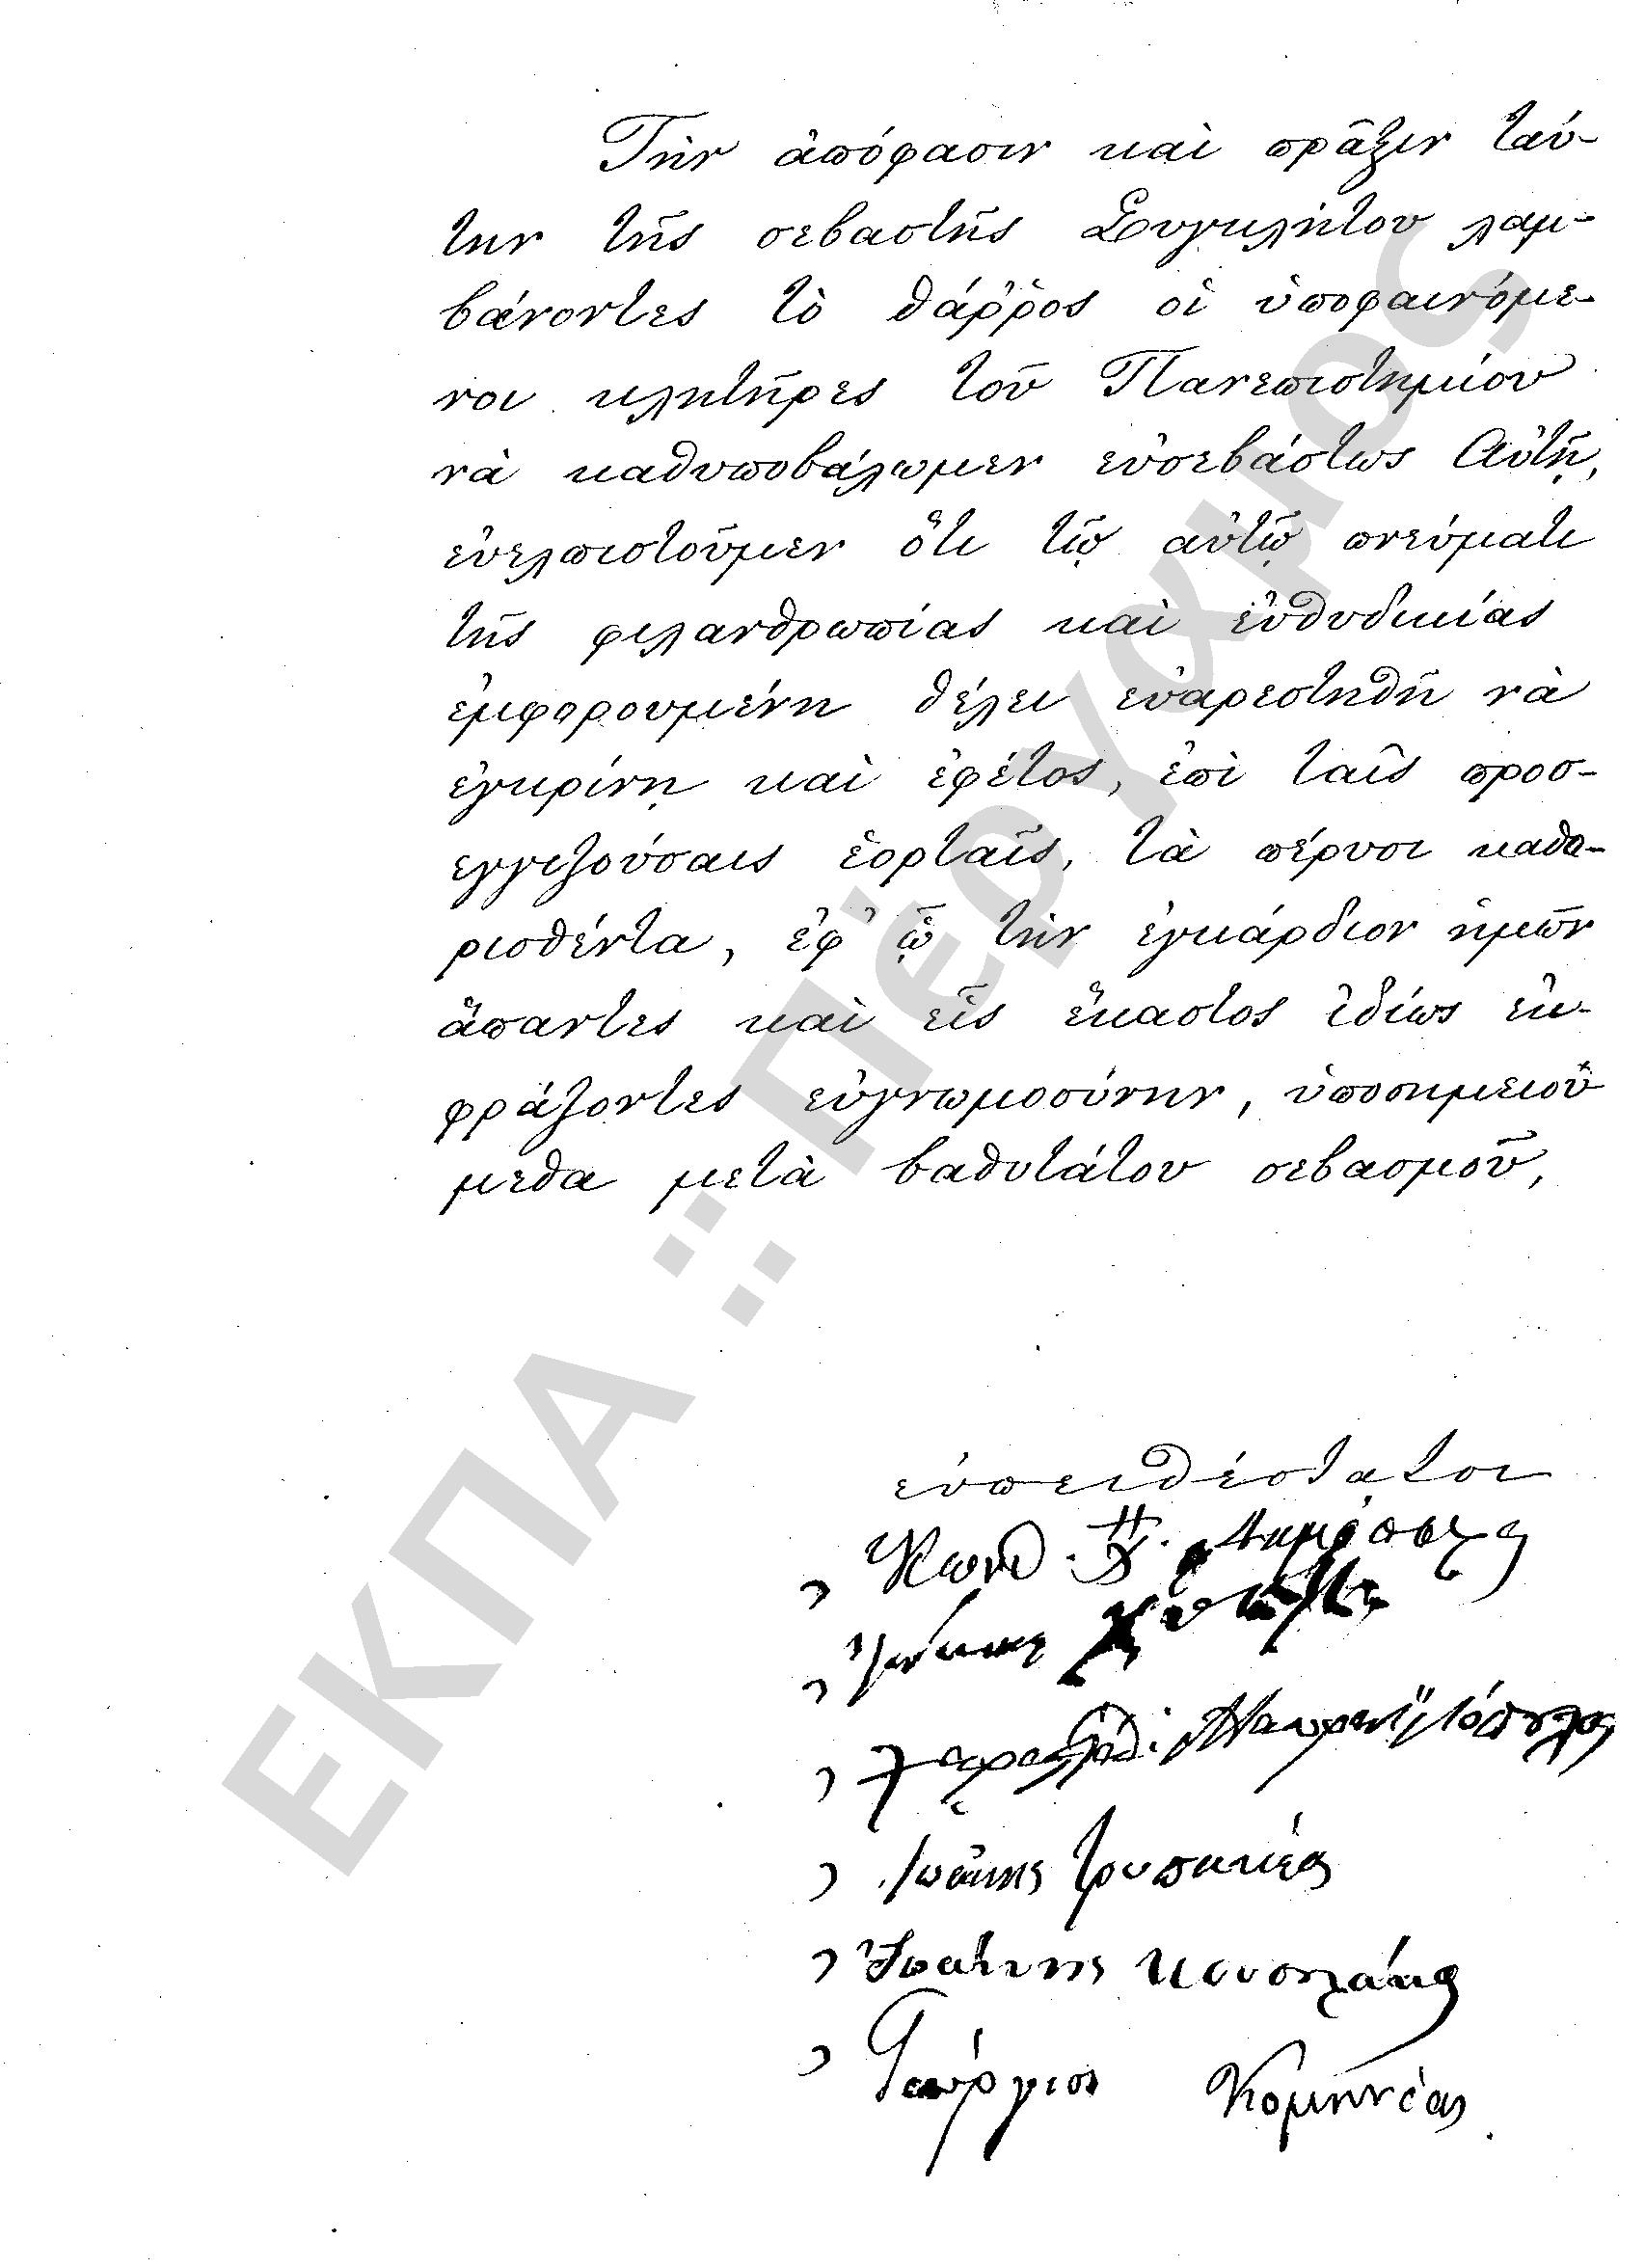 Τὴν ἀπόφασιν καὶ πρᾶξιν ταύ-
την τῆς σεβαστῆς Συγκλήτου λαμ-
βάνοντες τὸ θάῤῥος οἱ ὑποφαινόμε-
νοι κλητῆρες τοῦ Πανεπιστημίου
νὰ καθυποβάλωμεν εὐσεβάστως Αὐτῇ,
εὐελπιστοῦμεν ὅτι τῷ αὐτῷ πνεύματι
τῆς φιλανθρωπίας καὶ εὐθυδικίας
ἐμφορουμένη θέλει εὐαρεστηθῆ νὰ
ἐγκρίνῃ καὶ ἐφέτος, ἐπὶ ταῖς προσ-
εγγιζούσαις ἑορταῖς, τὰ πέρυσι καθο-
ρισθέντα, ἐφ' ᾧ τὴν ἐγκάρδιον ἡμῶν
ἅπαντες καὶ εἷς ἕκαστος ἰδίως ἐκ-
φράζοντες εὐγνωμοσύνην, ὑποσημειού
μεθα μετὰ βαθυτάτου σεβασμοῦ,
εὐπειθέστατοι
Ἰωάννης Τρυπανέας
Ἰωάννης Κουσουλάκος
Γεώργιος Κομηνέας
ΕΚΠΑ :: Πέργαμος